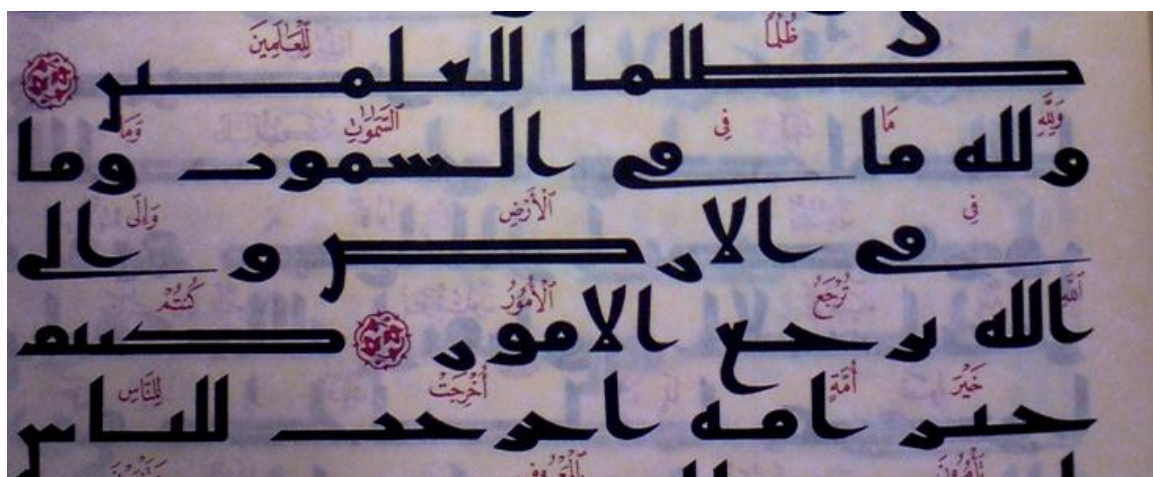 ظُلْمًا لِّلْعَالَمِينَ
طلما للعلمىں
وَلِلَّهِ مَا فِي ٱلسَّمَاوَاتِ وَمَا
ولله ما فى السموت وما
فِي ٱلْأَرْضِ وَإِلَى
فى الارض و الى
ٱللَّهِ تُرْجَعُ ٱلْأُمُورُ كُنتُمْ
الله ترجع الامور كنتم
خَيْرَ أُمَّةٍ أُخْرِجَتْ لِلنَّاسِ
خير امه اخرجت للناس
تَأْمُرُونَ بِٱلْمَعْرُوفِ